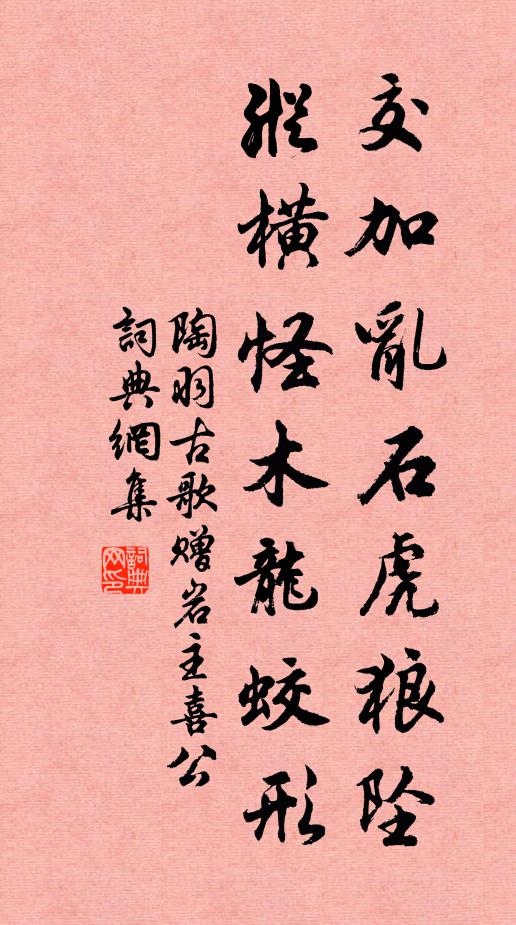 交加亂石虎狼坠
縱橫怪木龍蛟形
陶羽古歌贈岩主喜公
詞典網集
詞典
网印